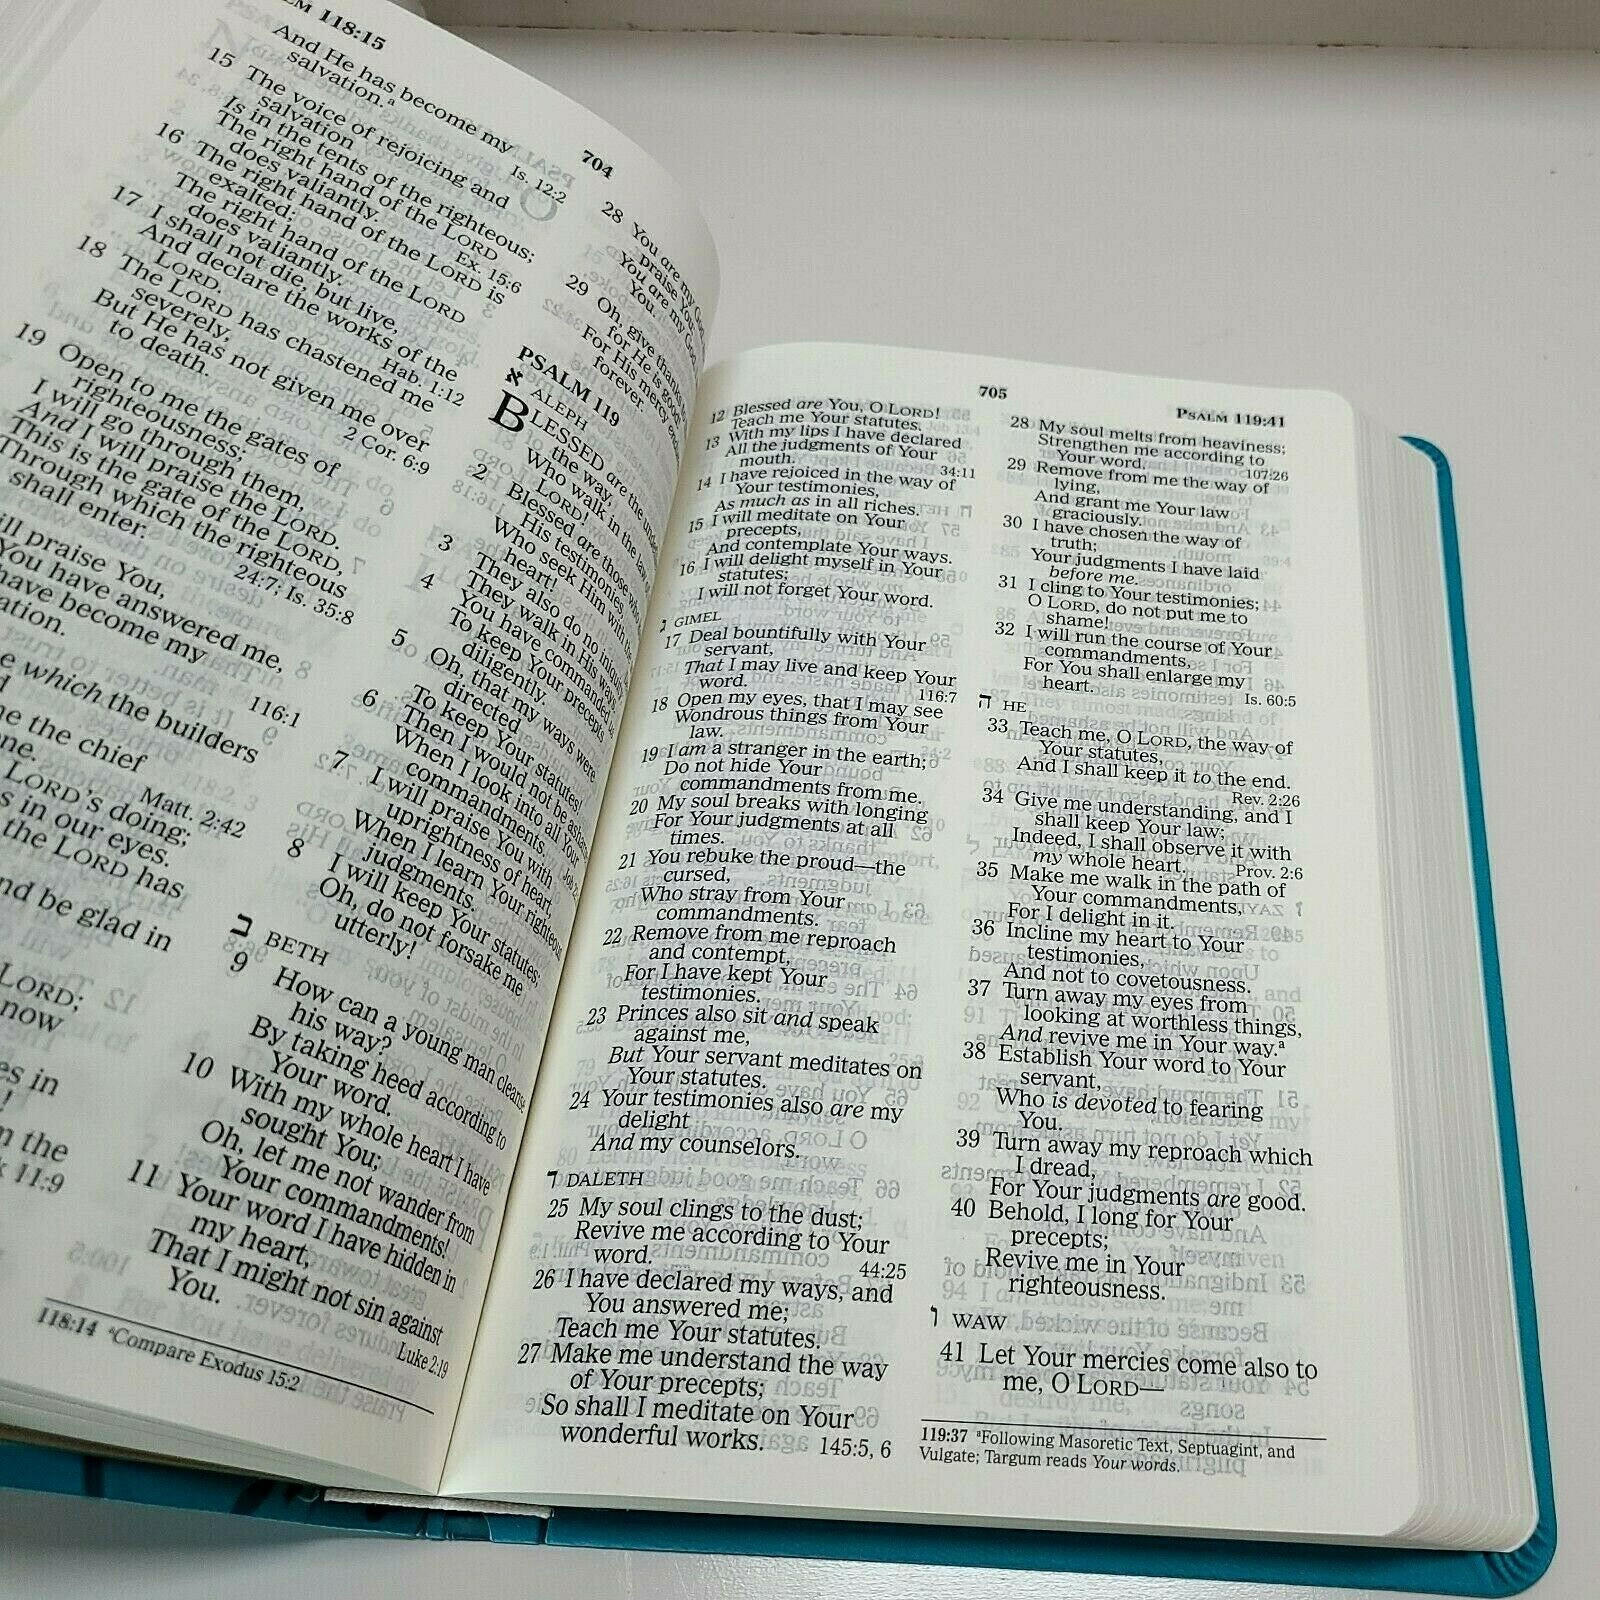 118:15
And He has become my
salvation.ᵃ
Is. 12:2
15 The voice of rejoicing and
salvation
Is in the tents of the righteous;
The right hand of the LORD
does valiantly.
Ex. 15:6
16 The right hand of the LORD is
exalted;
The right hand of the LORD
does valiantly.
17 I shall not die, but live,
And declare the works of the
LORD.
Hab. 1:12
18 The LORD has chastened me
severely,
But He has not given me over
to death.
2 Cor. 6:9
19 Open to me the gates of
righteousness;
I will go through them,
And I will praise the LORD.
This is the gate of the LORD,
Through which the righteous
shall enter.
24:7; Is. 35:8
praise You,
You have answered me,
have become my
116:1
which the builders
the chief
Matt. 2:42
LORD'S doing;
in our eyes.
the LORD has
and be glad in
LORD;
now
in
the
11:9
118:14 ᵃCompare Exodus 15:2
704
28 You are my God,
praise You;
You are my God,
You.
29 Oh, give thanks
for He is good
For His mercy
forever.
PSALM 119
א ALEPH
BLESSED are the
the way,
Who walk in the law
LORD!
2 Blessed are those who
His testimonies,
Who seek Him with the
heart!
3 They also do no iniquity
They walk in His ways.
4 You have commanded
To keep Your precepts
diligently.
5 Oh, that my ways were
directed
To keep Your statutes!
6 Then I would not be ashamed,
When I look into all Your
commandments.
7 I will praise You with
uprightness of heart,
When I learn Your righteous
judgments.
8 I will keep Your statutes;
Oh, do not forsake me
utterly!
ב BETH
9 How can a young man cleanse
his way?
By taking heed according to
Your word.
10 With my whole heart I have
sought You;
Oh, let me not wander from
Your commandments!
11 Your word I have hidden in
my heart,
That I might not sin against
You.
Luke 2:19
705
PSALM 119:41
12 Blessed are You, O LORD!
Teach me Your statutes.
13 With my lips I have declared
All the judgments of Your
mouth.
34:11
14 I have rejoiced in the way of
Your testimonies,
As much as in all riches.
15 I will meditate on Your
precepts,
And contemplate Your ways.
16 I will delight myself in Your
statutes;
I will not forget Your word.
ג GIMEL
17 Deal bountifully with Your
servant,
That I may live and keep Your
word.
116:7
18 Open my eyes, that I may see
Wondrous things from Your
law.
19 I am a stranger in the earth;
Do not hide Your
commandments from me.
20 My soul breaks with longing
For Your judgments at all
times.
21 You rebuke the proud—the
cursed,
Who stray from Your
commandments.
22 Remove from me reproach
and contempt,
For I have kept Your
testimonies.
23 Princes also sit and speak
against me,
But Your servant meditates on
Your statutes.
24 Your testimonies also are my
delight
And my counselors.
ד DALETH
25 My soul clings to the dust;
Revive me according to Your
word.
44:25
26 I have declared my ways, and
You answered me;
Teach me Your statutes.
27 Make me understand the way
of Your precepts;
So shall I meditate on Your
wonderful works.
145:5, 6
28 My soul melts from heaviness;
Strengthen me according to
Your word.
107:26
29 Remove from me the way of
lying,
And grant me Your law
graciously.
30 I have chosen the way of
truth;
Your judgments I have laid
before me.
31 I cling to Your testimonies;
O LORD, do not put me to
shame!
32 I will run the course of Your
commandments,
For You shall enlarge my
heart.
Is. 60:5
ה HE
33 Teach me, O LORD, the way of
Your statutes,
And I shall keep it to the end.
Rev. 2:26
34 Give me understanding, and I
shall keep Your law;
Indeed, I shall observe it with
my whole heart.
Prov. 2:6
35 Make me walk in the path of
Your commandments,
For I delight in it.
36 Incline my heart to Your
testimonies,
And not to covetousness.
37 Turn away my eyes from
looking at worthless things,
And revive me in Your way.ᵃ
38 Establish Your word to Your
servant,
Who is devoted to fearing
You.
39 Turn away my reproach which
I dread,
For Your judgments are good.
40 Behold, I long for Your
precepts;
Revive me in Your
righteousness.
ו WAW
41 Let Your mercies come also to
me, O LORD—
119:37 ᵃFollowing Masoretic Text, Septuagint, and
Vulgate; Targum reads Your words.